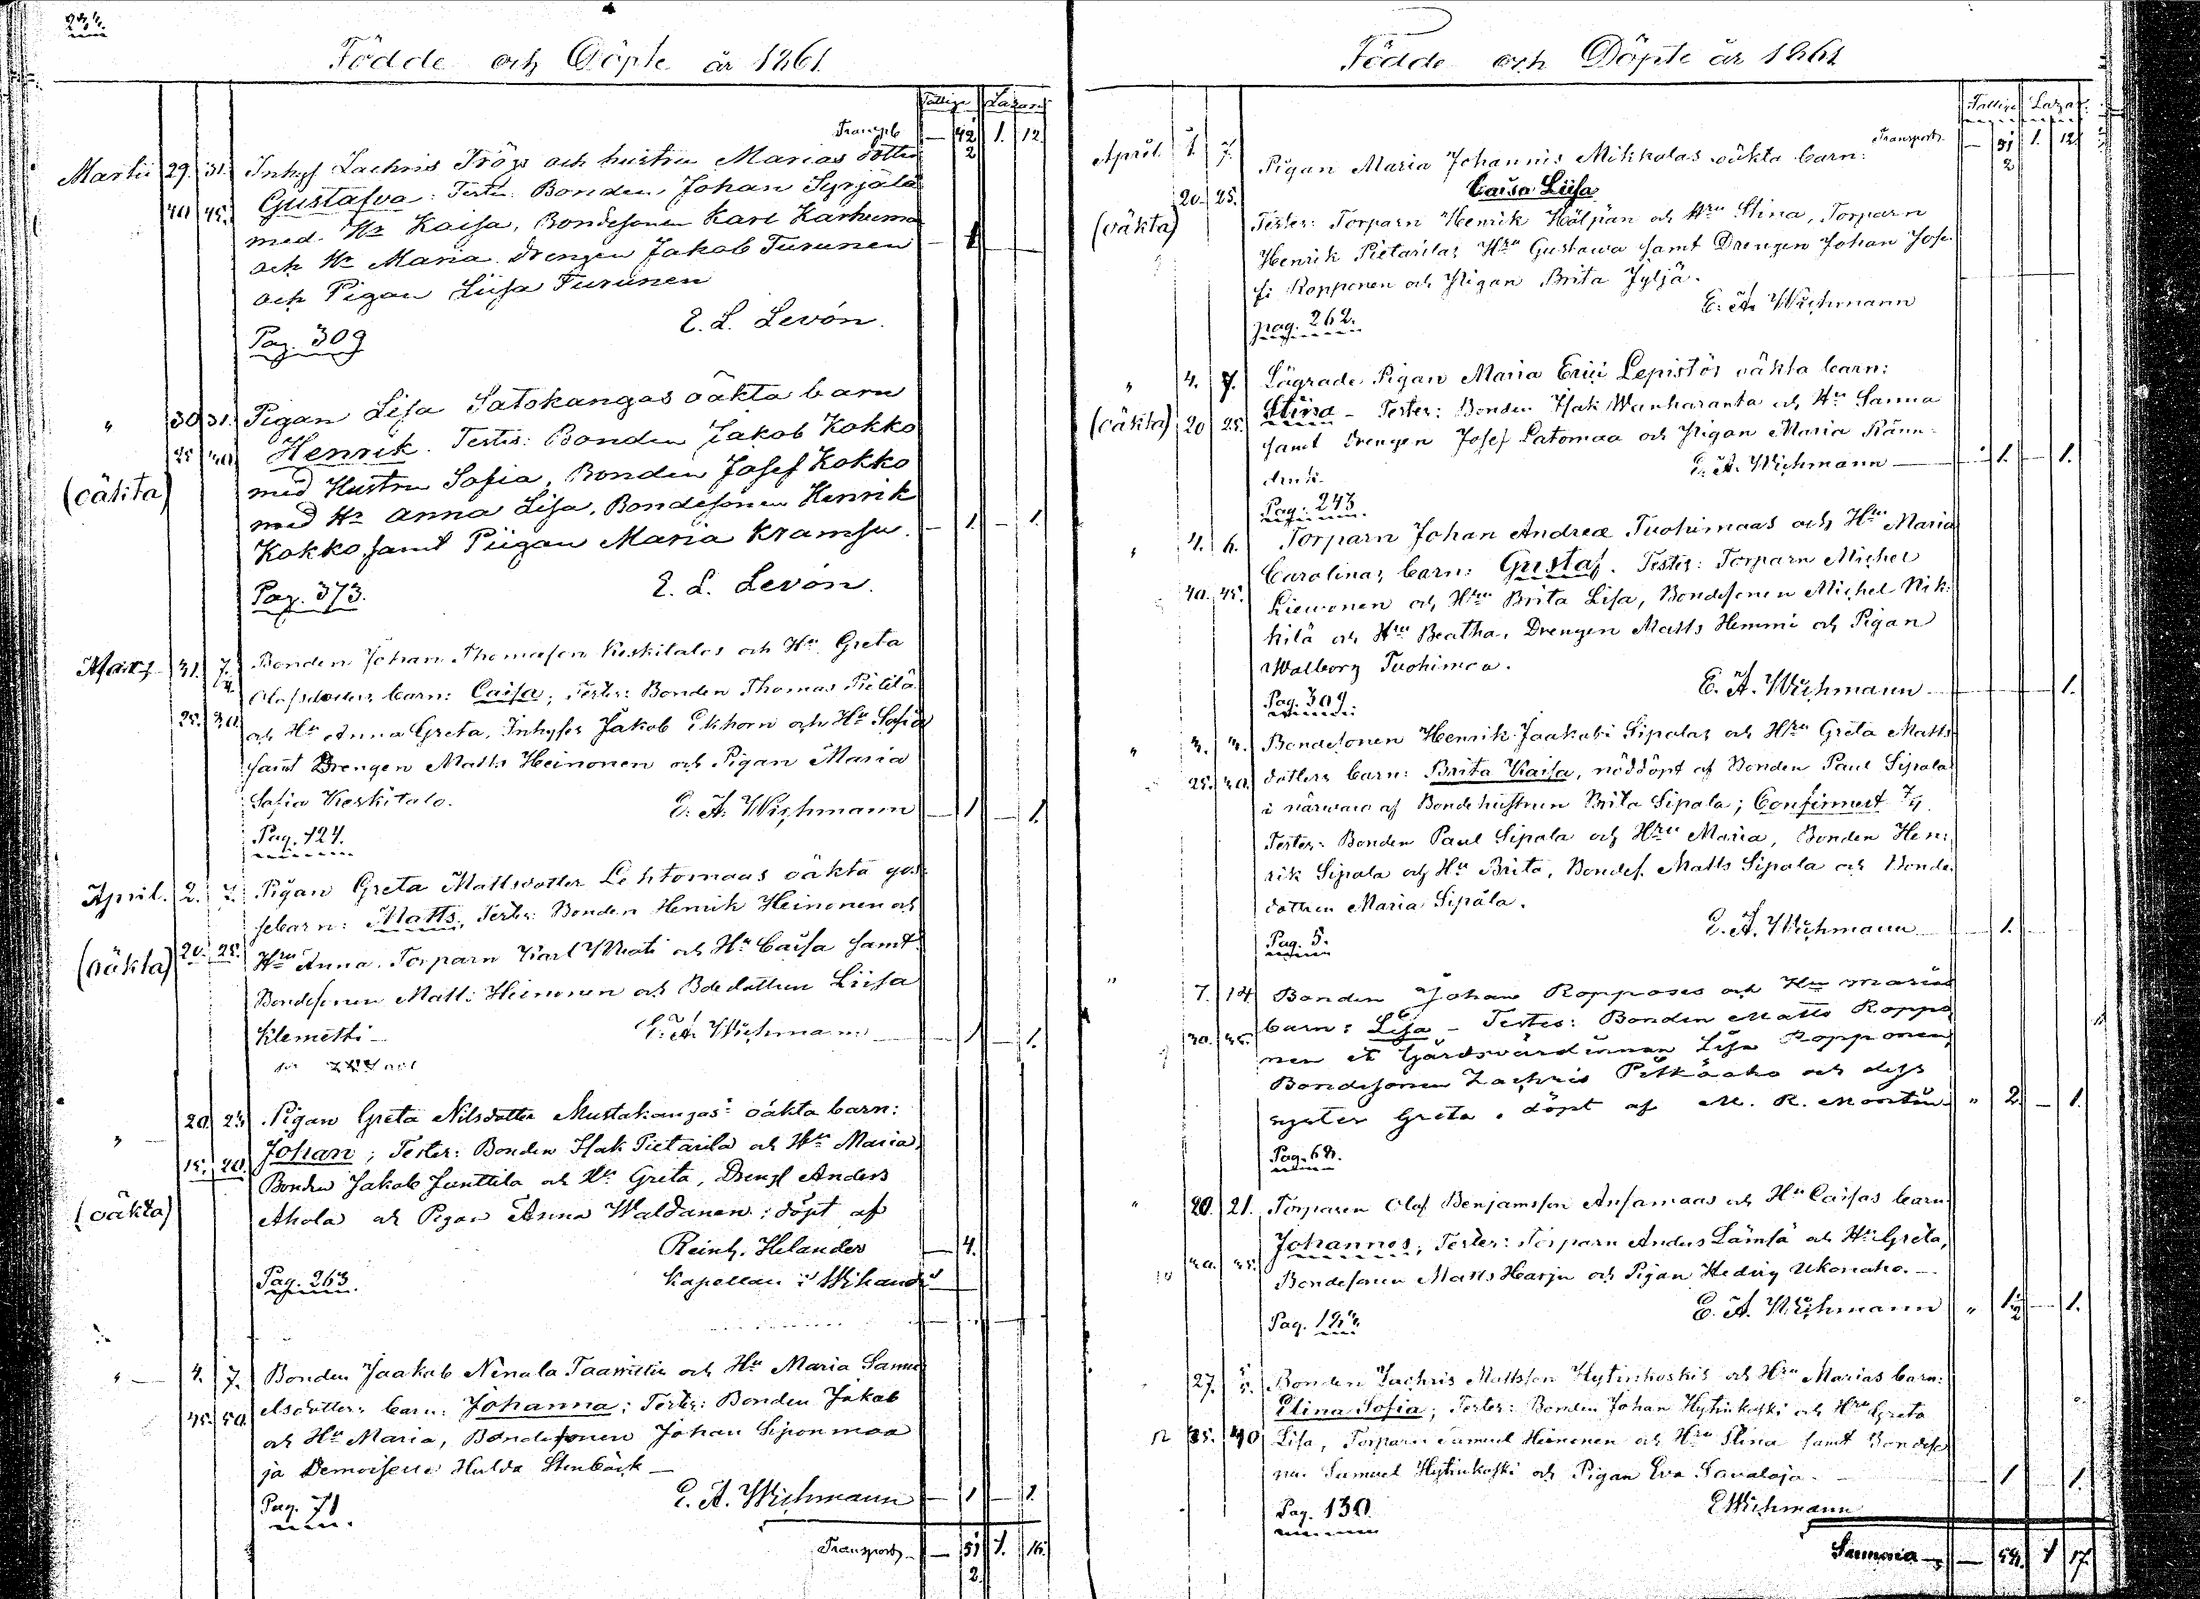 234.
Födde och Döpte år 1861
Fattige Lazar.
Transpt — 42/2 1. 12.
Martii 29. 31. Inhys Zachris Trögs och hustru Marias dotter
40. 45. Gustafva. Testes: Bonden Johan Syrjälä
med Hr Kaisa, Bondesonen Karl Karhuma
och Hr Maria. Drengen Jakob Turunen — 1
och Pigan Liisa Turunen
E. L. Levón.
Pag. 309
" 30. 31. Pigan Lisa Satokangas oäkta barn
25 30 Henrik. Testis: Bonden Jakob Kokko
(oäkta) med Hustru Sofia, Bonden Josef Kokko
med Hr Anna Lisa, Bondesonen Henrik
Kokko samt Piigan Maria Kramsu. — 1. — 1.
Pag. 373. E. L. Levón.
Mars 31. 7/4. Bonden Johan Thomasson Keskitalos och Hu Greta
Olofsdotters barn: Caisa; Testes: Bonden Thomas Pietilä
25. 30. och Hu Anna Greta, Inhyses Jakob Ekhorn och Hu Sofia
samt Drengen Matts Heinonen och Pigan Maria
Sofia Keskitalo. E. A. Wichmann — 1 — 1.
Pag. 124.
April. 2. 7. Pigan Greta Mattsdotter Lehtomaas oäkta gos-
sebarn: Matts, Testes: Bonden Henrik Heinonen och
(oäkta) 20. 25. Hru Anna. Torparn Karl och Hu Caisa samt
Bondesonen Matts Heinonen och Bdedottren Liisa
Klemetti — E. A. Wichmann — 1 — 1.
" — 20. 23. Pigan Greta Nilsdotter Mustakangas' oäkta barn:
15. 20. Johan; Testes: Bonden Isak Pietarila och Hu Maria,
Bonden Jakob Junttila och Hu Greta, Drengl Anders
(oäkta) Ahola och Pigan Anna Waldanen; döpt af
Reinh. Helander — 4.
Pag. 263. Kapellan i Wihandi
" — 4. 7. Bonden Jaakob Ninala och Hu Maria Samu-
45. 50. elsdotters barn: Johanna; Testes: Bonden Jakob
och Hu Maria, Bondesonen Johan Siponmaa
ja Demoiselle Hulda Stenbäck —
Pag. 71 E. A. Wichmann — 1 — 1.
Transport — 51/2 1. 16.
Födde och Döpte år 1861
Fattige Lazar.
Transport — 51/2 1. 12
April. 1. 7. Pigan Maria Johannis Mikkolas oäkta barn:
20. 25. Caisa Liisa
(oäkta) Testes: Torparn Henrik Hälpän och Hru Stina, Torparn
Henrik Pietarilas Hru Gustawa samt Drengen Johan Jose-
fi Ropponen och Pigan Brita Jyljä.
E. A. Wichmann
pag. 262.
" 4. 7. Lägrade Pigan Maria Erici Lepistös oäkta barn:
(oäkta) 20 25. Stina — Testes: Bonden Isak Wanharanta och Hru Sanna
samt drengen Josef Latomaa och Pigan Maria Ränn-
E. A. Wichmann — 1. — 1.
Pag. 243
" 4. 6. Torparn Johan Andreæ Tuohimaas och Hru Maria
Carolinas barn: Gustaf. Testes: Torparn Michel
40. 45. Liewonen och Hru Brita Lisa, Bondesonen Michel Nik-
kilä och Hru Beatha, Drengen Matts Hemmi och Pigan
Walborg Tuohimaa.
Pag. 309. E. A. Wichmann — 1.
" 3. 3. Bondesonen Henrik Jaakobi Sipolas och Hru Greta Matts
25. 30. dotters barn: Brita Kaisa, nöddöpt af Bonden Paul Sipola
i närwaro af Bondehustrun Brita Sipola; Confirmert 7/4.
Testes: Bonden Paul Sipola och Hru Maria, Bonden Hen-
rik Sipola och Hu Brita, Bondes. Matts Sipola och Bonde-
dottren Maria Sipola.
E. A. Wichmann — 1.
Pag. 5.
" 7. 14 Bonden Johan Ropposes och Hu Marias
barn: Lisa — Testes: Bonden Matts Roppo-
30. 35. nen et Gårdsvärdinnan Lisa Ropponen,
Bondesonen Zachris Pitkäaho och dess
syster Greta. döpt af M. R. Montin — " 2. — 1.
Pag. 68.
" 20. 21. Torparen Olof Benjamsson Ansamaas och Hu Caisas barn
Johannes; Testes: Torparn Anders Lämsä och Hu Greta,
30. 35. Bondesonen Matts Harju och Pigan Hedvig Ukonaho. —
E. A. Wichmann " 1½ — 1.
27. 5/5. Bonden Zachris Mattsson Hytinkoskis och Hru Marias barn:
Elina Sofia; Testes: Bonden Johan Hytinkoski och Hru Greta
35. 40 Lisa, Torparn Samuel Heinonen och Hru Stina samt Bondeso-
nen Samuel Hytinkoski och Pigan Eva Savaloja. — 1 — 1.
Pag. 130 EWichmann
Summa — 59. 1 17.